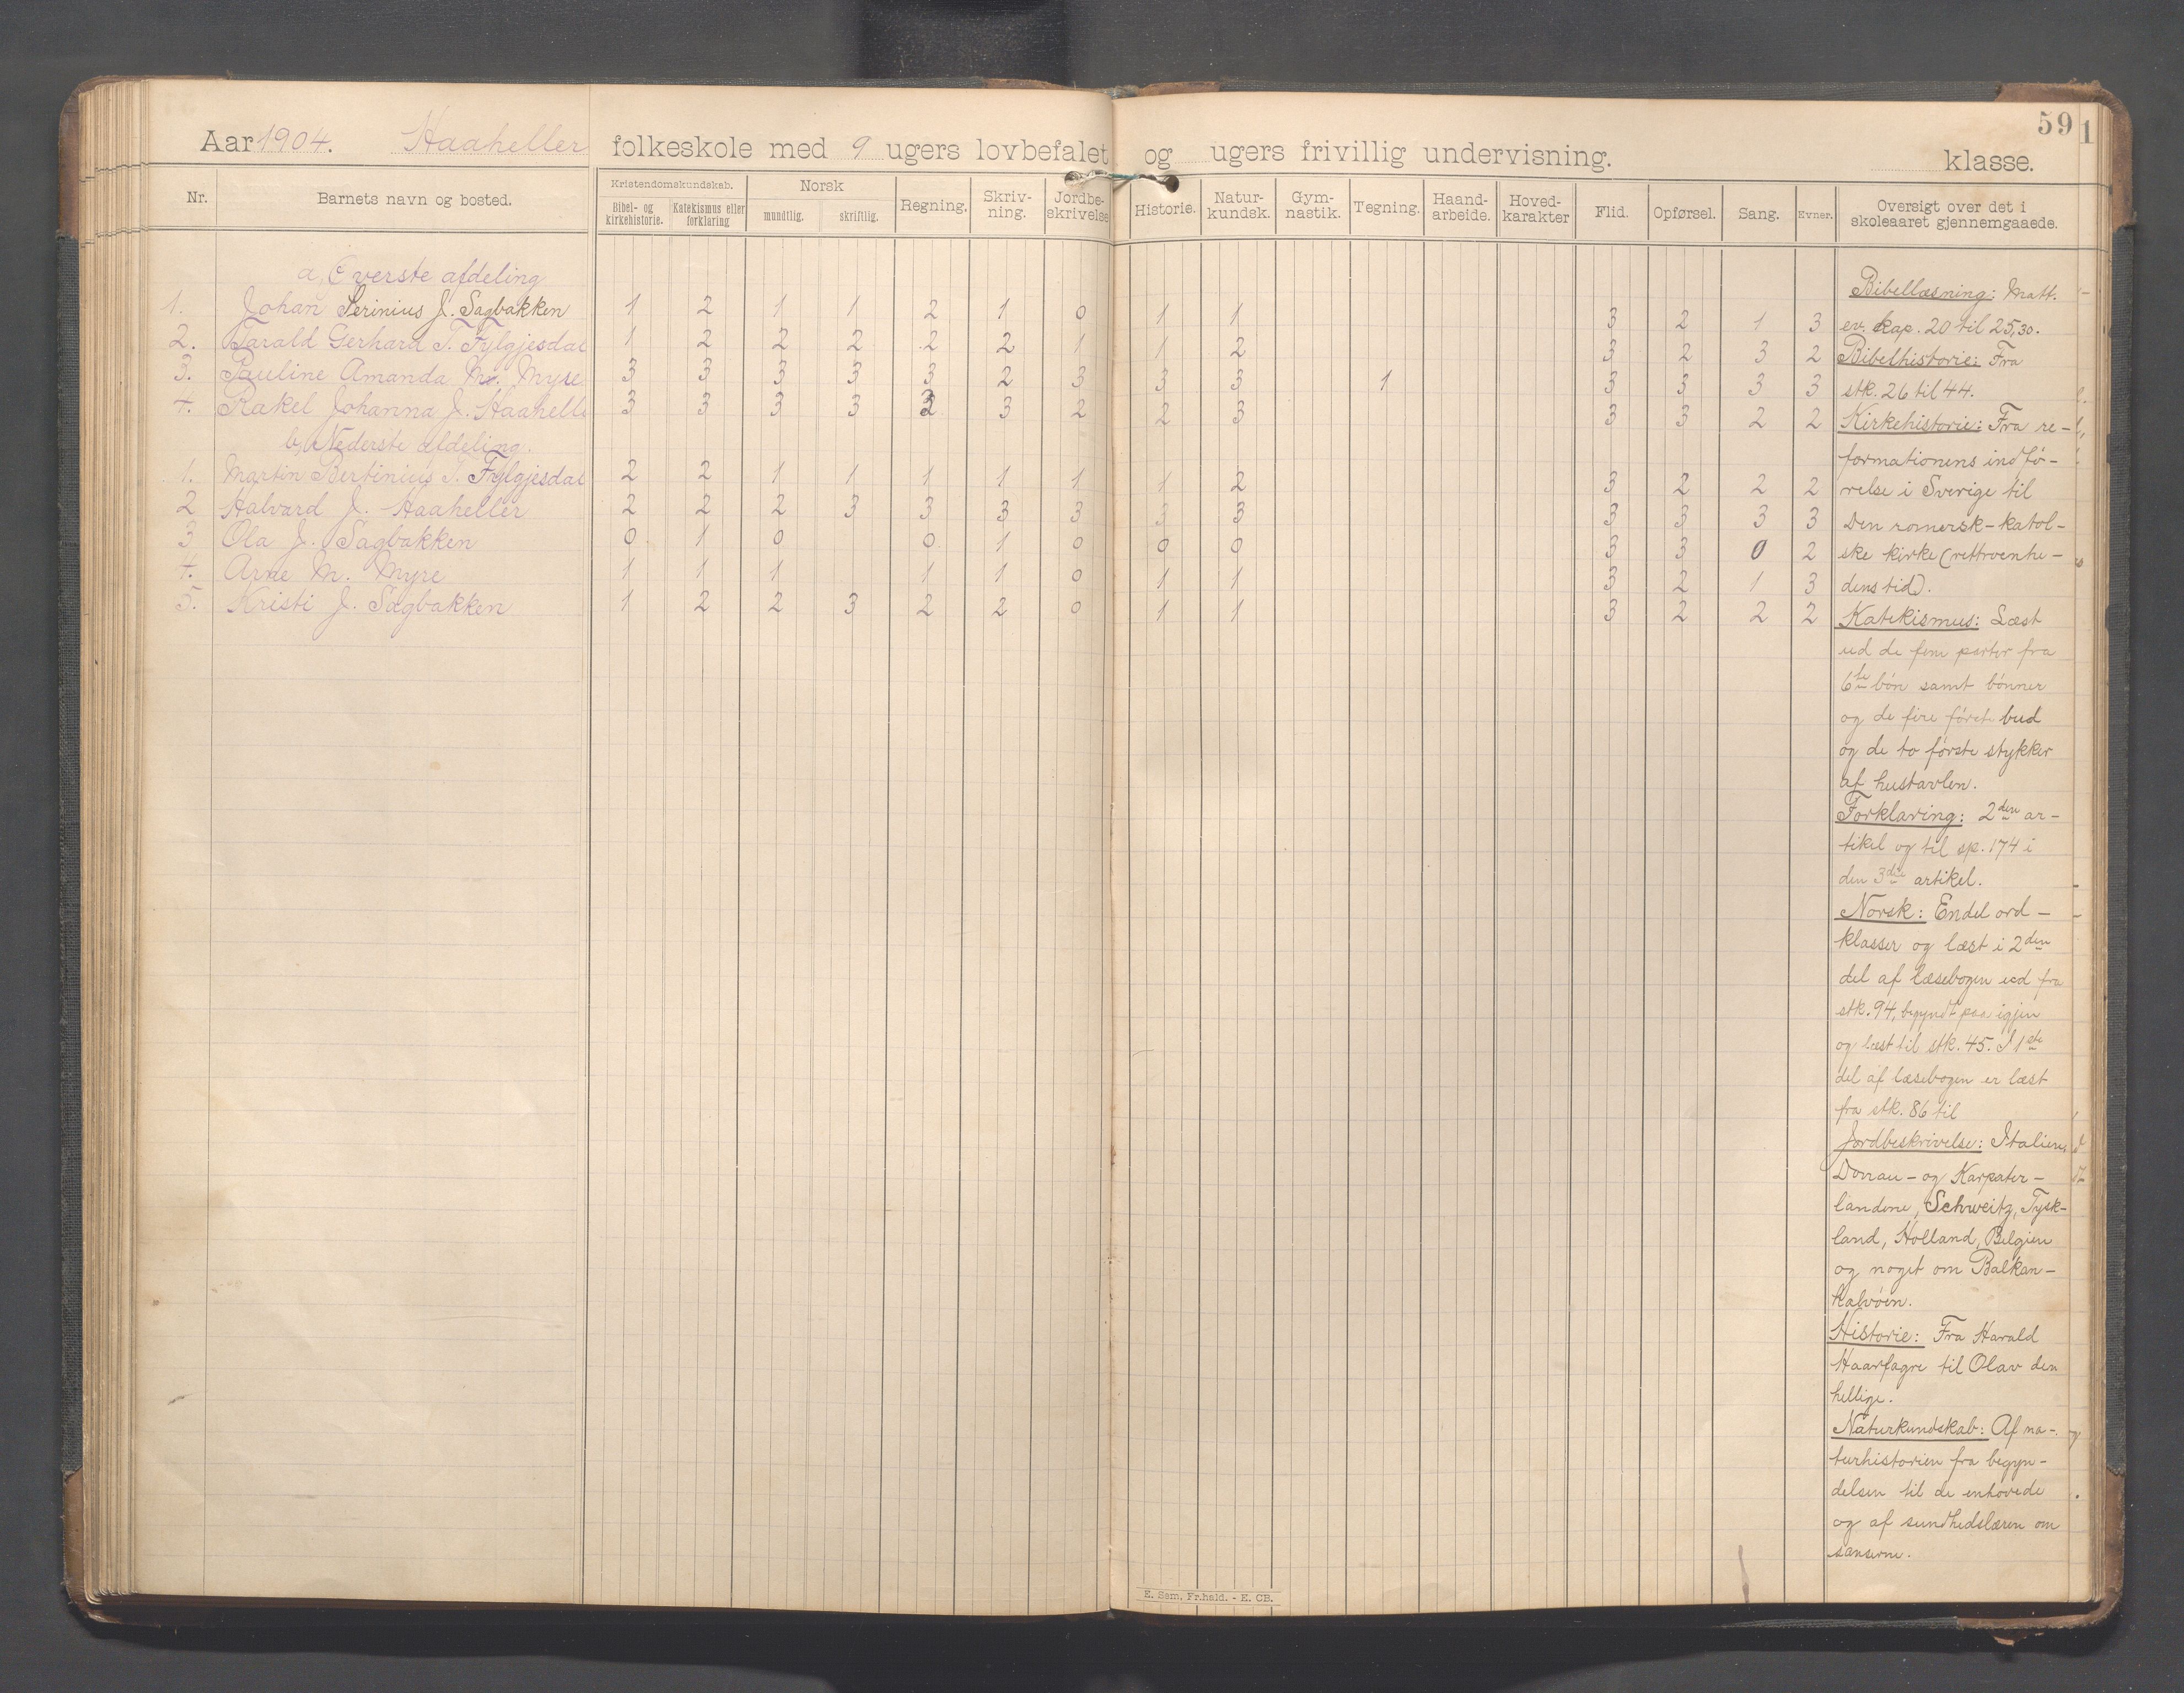 59 1
Aar 1904. Haaheller folkeskole med 9 ugers lovbefalet og ugers frivillig undervisning. klasse.
Nr. Barnets navn og bosted. Kristendomskundskab. Bibel- og kirkehistorie. Katekismus eller forklaring Norsk mundtlig. skriftlig. Regning. Skriv-ning. Jordbe-skrivelse Historie. Natur-kundsk. Gym-nastik. Tegning. Haand-arbeide. Hoved-karakter Flid. Opførsel. Sang. Evner. Oversigt over det i skoleaaret gjennemgaaede.
a, Øverste afdeling
1. Johan Serinius J. Sagbakken 1 2 1 1 2 1 0 1 1 3 2 1 3
2. Tarald Gerhard T. Fylgjesdal 1 2 2 2 2 2 1 1 2 3 2 3 2
3. Pauline Amanda M. Myre 3 3 3 3 3 2 3 3 3 1 3 3 3 3
4. Rakel Johanna J. Haahelle 3 3 3 3 3 2 2 3 3 3 2 2
b, Nederste afdeling.
1. Martin Bertinius T. Fylgjesdal 2 2 1 1 1 1 1 1 2 3 2 2 2
2 Halvard J. Haaheller 2 2 2 3 3 3 3 3 3 3 3 3 3
3 Ola J. Sagbakken 0 1 0 0 1 0 0 0 3 3 0 2
4. Arne M. Myre 1 1 1 1 1 0 1 1 3 2 1 3
5. Kristi J. Sagbakken 1 2 2 3 2 2 0 1 1 3 2 2 2
Bibellæsning: Matt.
ev. kap. 20 til 25,30.
Bibelhistorie: Fra
stk. 26 til 44.
Kirkehistorie: Fra re-
formationens indfø-
relse i Sverige til
Den romersk-katol-
ske kirke (rettroenhe-
dens tid).
Katekismus: Læst
ud de fem parter fra
6te bøn samt bønner
og de fire første bud
og de to første stykker
af hustavlen.
Forklaring: 2den ar-
tikel og til sp. 174 i
den 3die artikel.
Norsk: Endel ord-
klasser og læst i 2den
del af læsebogen ud fra
stk. 94, begyndt paa igjen
og læst til stk. 45. I 1ste
del af læsebogen er læst
fra stk. 86 til
Jordbeskrivelse: Italien,
Donau- og Karpater-
landene, Schweitz, Tysk-
land, Holland, Belgien
og noget om Balkan-
halvøen.
Historie: Fra Harald
Haarfagre til Olav den
hellige.
Naturkundskab: Af na-
turhistorien fra begyn-
delsen til de enhovede
og af sundhedslæren om
sanserne.
E. Sem, Fr.hald. - E. CB.